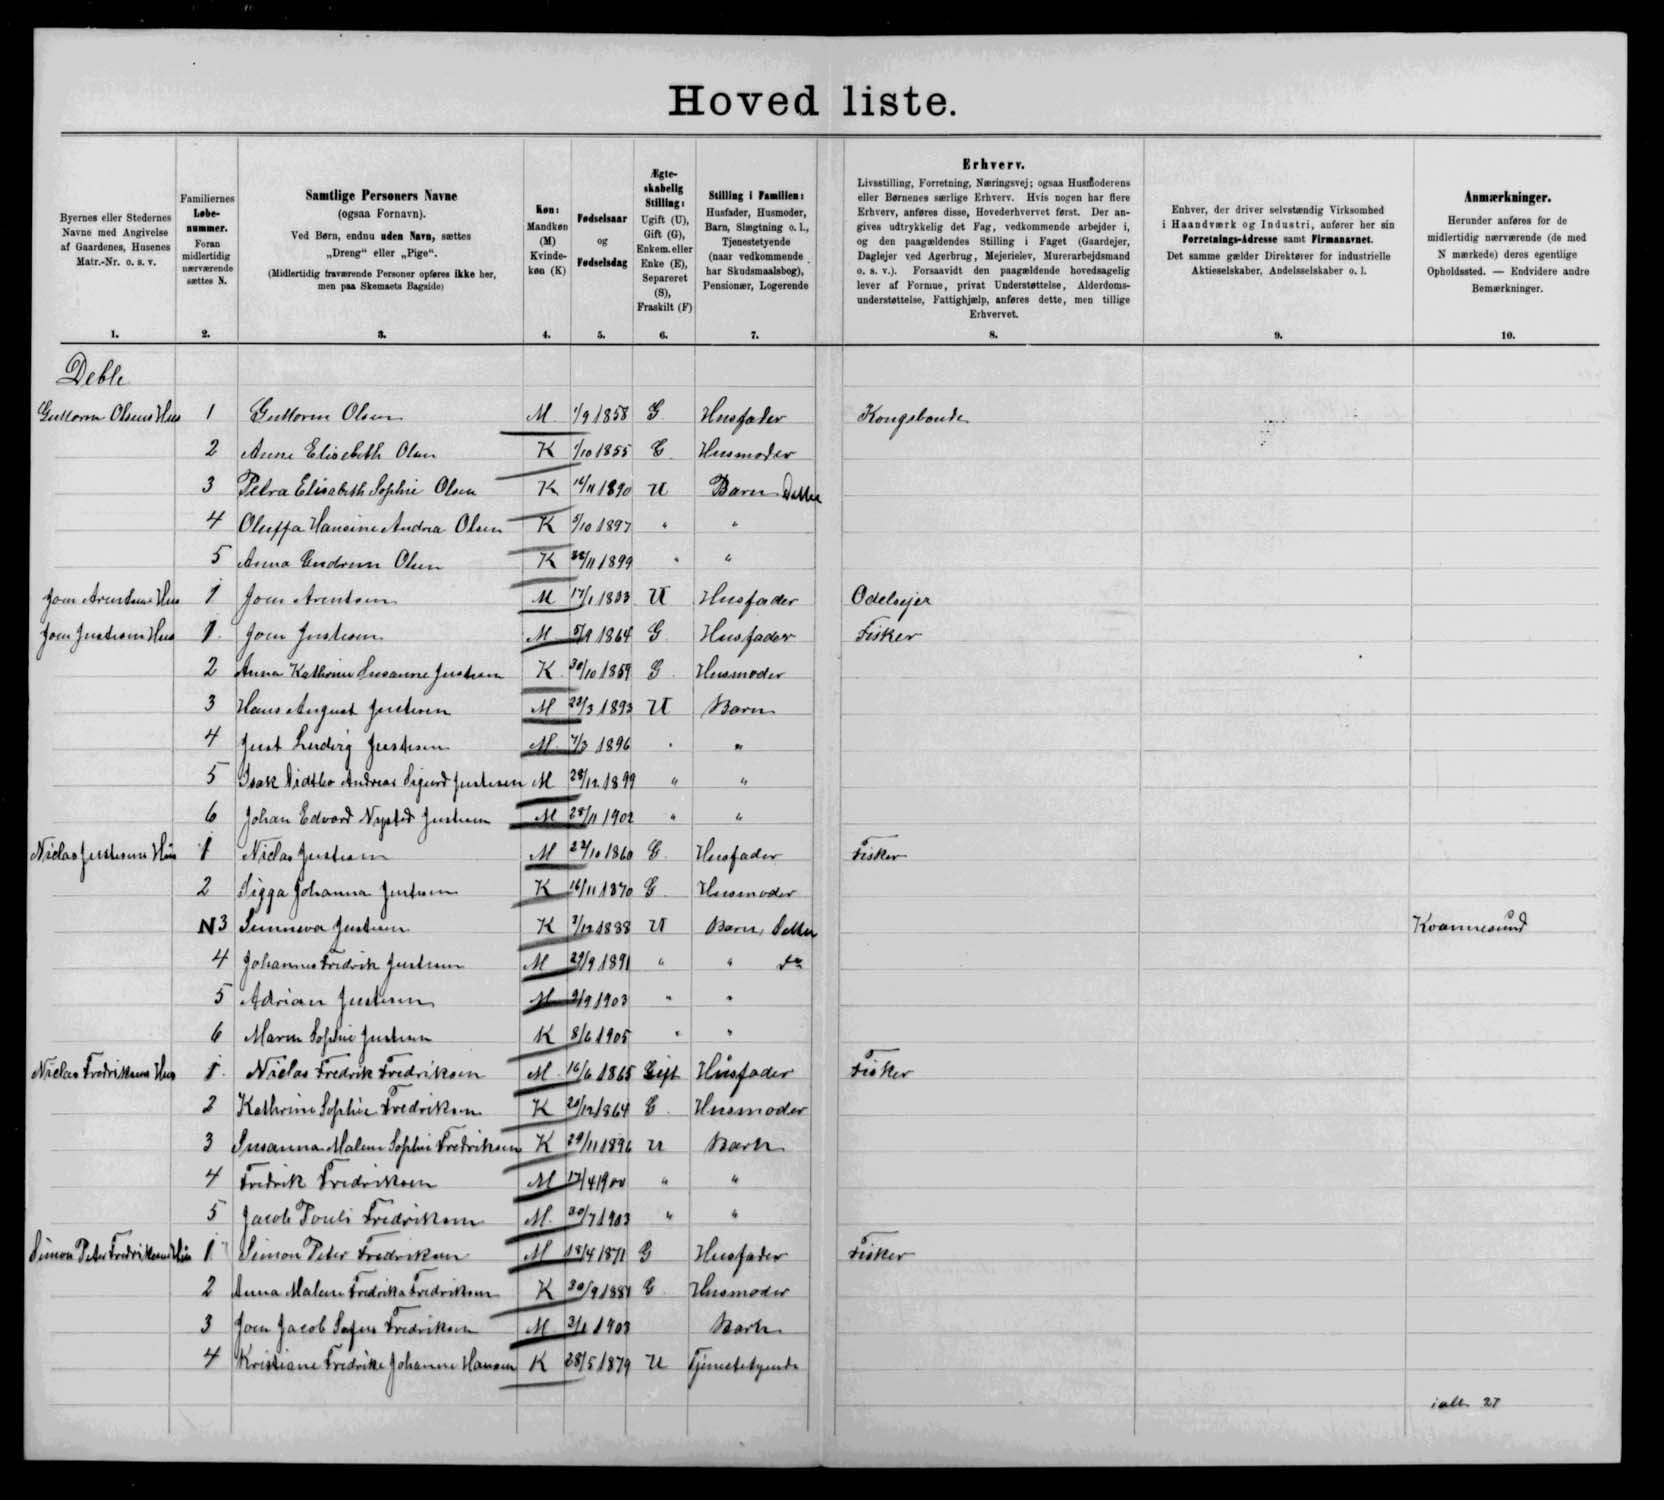 Hovedliste.
Byernes eller Stedernes Navne med Angivelse af Gaardenes, Husenes Matr.-Nr. o. s. v.
Familiernes Løbenummer. Foran midlertidig nærværende sættes N.
Samtlige Personers Navne (ogsaa Fornavn).
Ved Børn, endnu uden Navn, sættes „Dreng“ eller „Pige“.
(Midlertidig fraværende Personer opføres ikke her, men paa Skemaets Bagside)
Køn: Mandkøn (M) Kvindekøn (K)
Fødselsaar og Fødselsdag
Ægteskabelig Stilling: Ugift (U), Gift (G), Enkem. eller Enke (E), Separeret (S), Fraskilt (F)
Stilling i Familien: Husfader, Husmoder, Barn, Slægtning o. l., Tjenestetyende (naar vedkommende har Skudsmaalsbog), Pensionær, Logerende
Erhverv.
Livsstilling, Forretning, Næringsvej; ogsaa Husmoderens eller Børnenes særlige Erhverv. Hvis nogen har flere Erhverv, anføres disse, Hovederhvervet først. Der angives udtrykkelig det Fag, vedkommende arbejder i, og den paagældendes Stilling i Faget (Gaardejer, Daglejer ved Agerbrug, Mejerielev, Murerarbejdsmand o. s. v.). Forsaavidt den paagældende hovedsagelig lever af Formue, privat Understøttelse, Alderdomsunderstøttelse, Fattighjælp, anføres dette, men tillige Erhvervet.
Enhver, der driver selvstændig Virksomhed i Haandværk og Industri, anfører her sin Forretnings-Adresse samt Firmanavnet.
Det samme gælder Direktører for industrielle Aktieselskaber, Andelsselskaber o. l.
Anmærkninger.
Herunder anføres for de midlertidig nærværende (de med N mærkede) deres egentlige Opholdssted. — Endvidere andre Bemærkninger.
1. 2. 3. 4. 5. 6. 7. 8. 9. 10.
Deble
Guttorm Olsens Hus 1 Guttorm Olsen M 1/9 1858 G Husfader Kongsbonde
2 Anne Elisebeth Olsen K 1/10 1855 G Husmoder
3 Petra Elisabeth Sophie Olsen K 16/11 1890 U Barn Datter
4 Oluffa Hansine Andrea Olsen K 5/10 1897 " "
5 Anna Gudrun Olsen K /11 1899 " "
Joen Arentsens Hus 1 Joen Arentsen M 17/1 1833 U Husfader Odelsejer
Joen Justesens Hus 1 Joen Justesen M 5/9 1864 G Husfader Fisker
2 Anna Kathrine Susanne Justesen K 30/10 1859 G Husmoder
3 Hans August Justesen M 22/3 1893 U Barn
4 Just Ludvig Justesen M 7/3 1896 " "
5 Isak Didtlev Andreas Sigurd Justesen M 28/12 1899 " "
6 Johan Edvard Nysted Justesen M 28/11 1902 " "
Niclas Justesens Hus 1 Niclas Justesen M 22/10 1860 G Husfader Fisker
2 Sigga Johanna Justesen K 16/11 1870 G Husmoder
N 3 Sunneva Justesen K /12 1888 U Barn, Datter Kvannesund
4 Johannes Fredrik Justesen M 29/9 1891 " "
5 Adrian Justesen M 9/9 1903 " "
6 Maren Sophie Justesen K 8/6 1905 " "
Niclas Fredriksens Hus 1 Niclas Fredrik Fredriksen M 16/6 1865 Gift Husfader Fisker
2 Kathrine Sophie Fredriksen K 20/12 1864 G Husmoder
3 Susanna Malene Sophie Fredriksen K 29/11 1896 U Barn
4 Fredrik Fredriksen M 17/4 1900 " "
5 Jacob Pouli Fredriksen M 30/7 1903 " "
Simon Peter Fredriksens Hus 1 Simon Peter Fredriksen M 18/4 1871 G Husfader Fisker
2 Anna Malene Fredrika Fredriksen K 30/9 1881 G Husmoder
3 Joen Jacob Fredriksen M 1903 Barn
4 Kristiane Fredrike Johanne Hansen K 28/5 1879 U Tjenestetyende
ialt 27